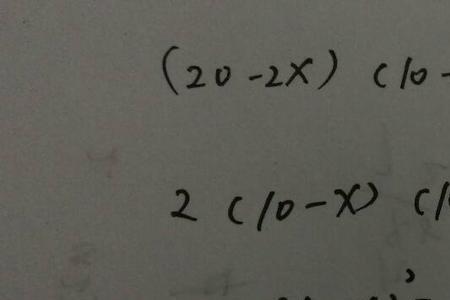 (20-2x) (10-
2 (10-x) (1